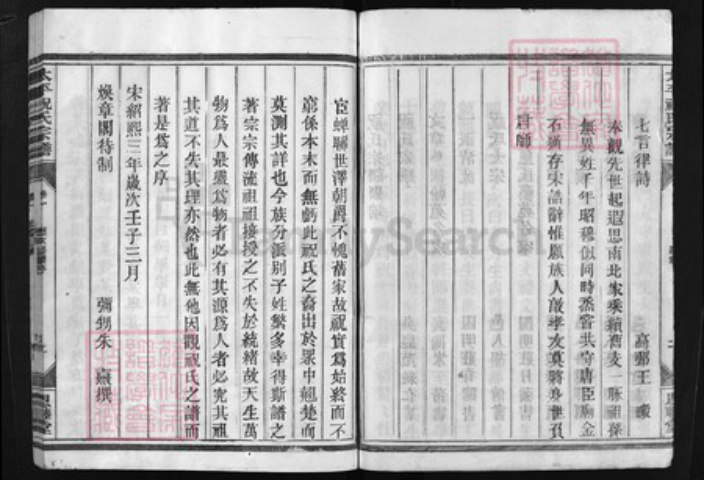 七言律詩
高郵王
奉觀先世起遐思南北家乘續舊支一脉祖孫
無異姓千年昭穆似同時烝嘗共守唐臣廟金
石猶存宋誥辭惟願族人敬孝友莫將身世負
君師
宦蟬聯世澤朝爵不愧舊家故祝實爲始終而不
窮係本末而無虧此祝氏之裔出於眾中翹楚而
莫測其詳也今族分派别子姓繁多幸得斯譜之
著宗宗傳流祖祖接授之不失於統緒故天生萬
物爲人最靈爲物者必有其源爲人者必究其祖
其道不失其理亦然也此無他因觀祝氏之譜而
著是爲之序
宋紹熙三年歲次壬子三月
煥章閣待制 彌甥朱 熹撰
太平祝氏宗譜
卷一
FamilySearch